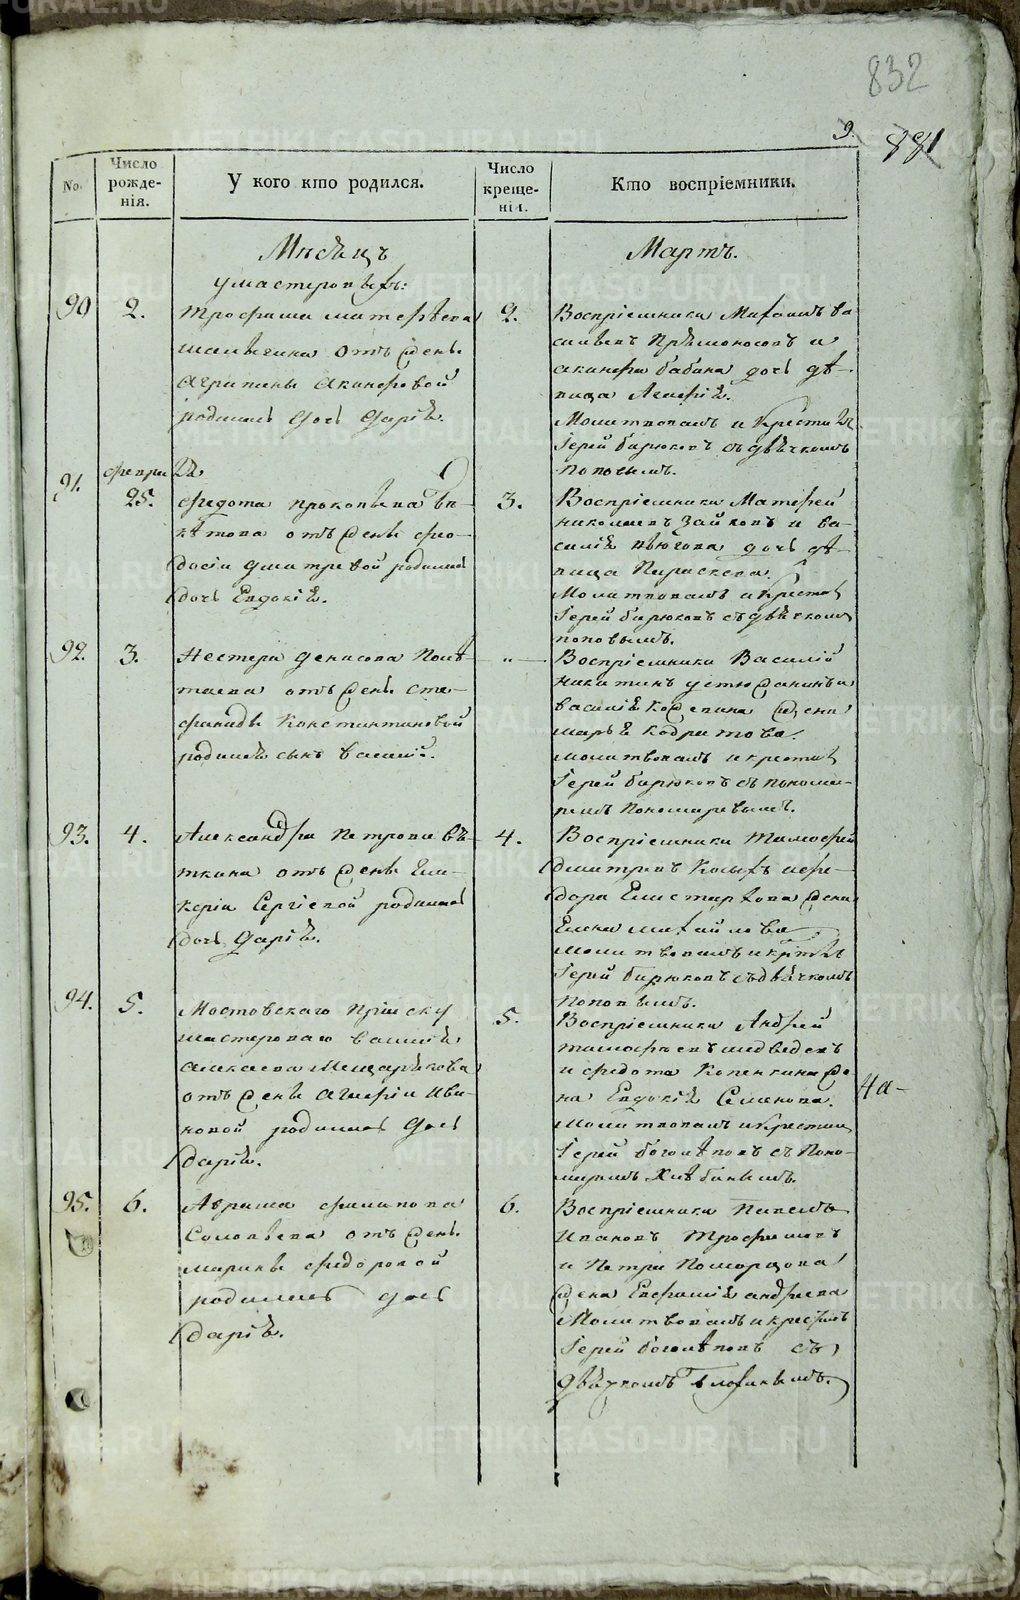 832
9.
881
No.
Число рожде-нія.
У кого кто родился.
Число креще-нія.
Кто воспріемники.
Мѣсяцъ
Мартъ.
умастеровыхъ:
90
2.
Трофима Матфѣева
отъ жены
Агрипины
родилась дочь Дарія.
2.
Воспріемники Михаилъ Ва
сильевъ и
бабина дочь дѣ-
вица
Молитвовалъ и крестилъ
Іерей Бирюковъ съ дьячкомъ
Поповымъ.
91.
Февраля
25.
Федота Прокопьева Ва-
отъ жены Фео-
досіи Дмитревой родилась
дочь Евдокія.
3.
Воспріемники Матфей
Николаевъ Зайковъ и Ва-
силія дочь дѣ-
вица Параскева.
Молитвовалъ и крестилъ
Іерей Бирюковъ съ дьячкомъ
Поповымъ.
92.
3.
Нестера Денисова Полѣ-
таева отъ жены Сте-
фаниды Константиновой
родился сынъ Василій.
"
Воспріемники Василій
Никитинъ Устюжанинъ и
Василія жена
Марья
молитвовалъ и крестилъ
Іерей Бирюковъ съ понома-
ремъ Пономаревымъ.
93.
4.
Александра Петрова Вят-
кина отъ жены Гли-
керіи Сергіевой родилась
дочь Дарія.
4.
Воспріемники Тимофей
Дмитревъ Косыхъ и Фе-
дора жена
Елена Михайлова
молитвовалъ и крестилъ
Іерей Бирюковъ съ дьячкомъ
Поповымъ.
94.
5.
Мостовскаго прійску
мастероваго Василія
Алексѣева Мещарякова
отъ жены Агафіи Ива-
новой родилась дочь
Дарія.
5.
Воспріемники Андрей
Тимофѣевъ Медведевъ
и Федота Копенкина же
на Евдокія Семенова.
На-
Молитвовалъ и крестилъ
Іерей Боголѣповъ съ поно-
маремъ Хлѣбинымъ.
95.
6.
Аврама Филипова
Соловьева отъ жены
Марины Федоровой
родилась дочь
Дарія.
6.
Воспріемники Павелъ
Ивановъ Трофимовъ
и Петра Поморцова
жена Евфимія Андреева
Молитвовалъ и крестилъ
Іерей Боголѣповъ съ
дьячкомъ
METRIKI.GASO-URAL.RU